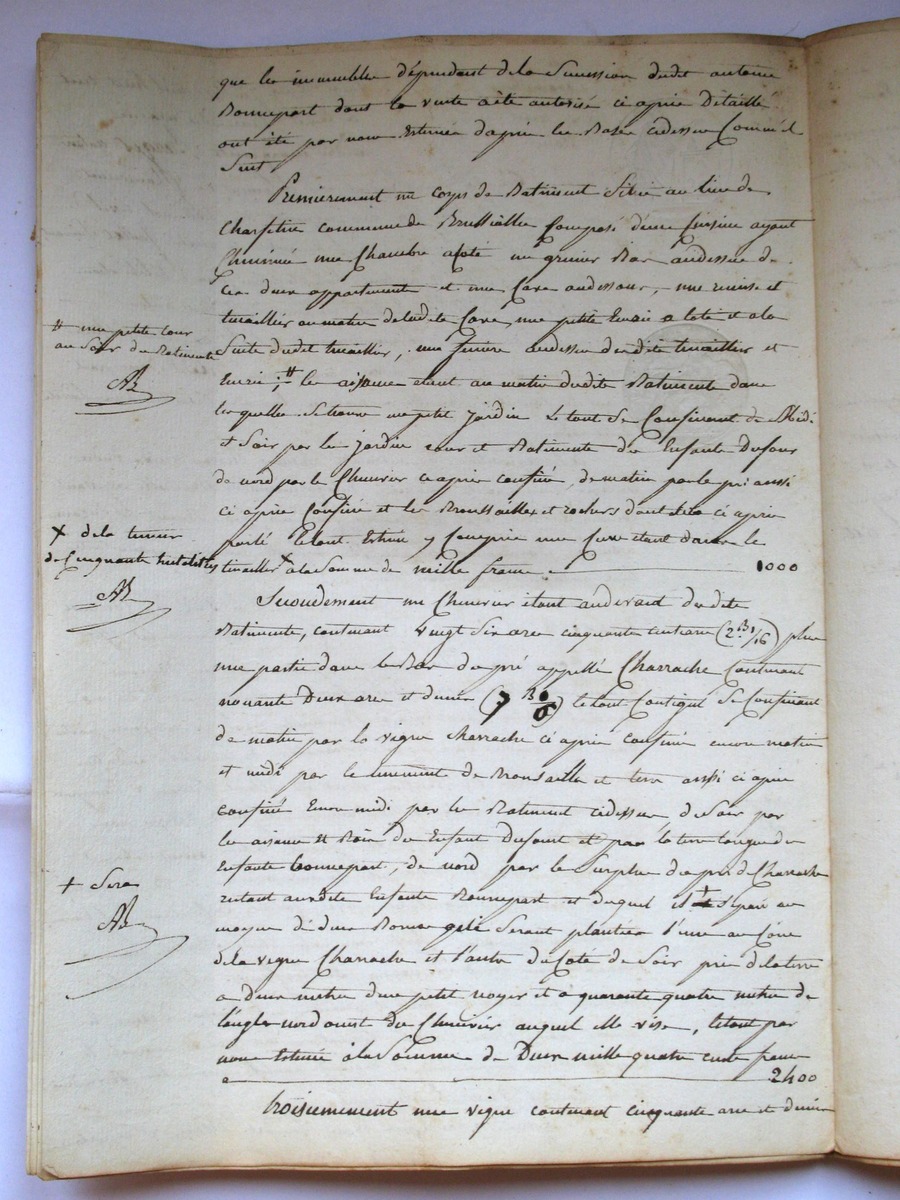 que les immeubles dépendant de la Sucession dudit antoine
Bonnepart dont la vente a été autorisé ci après Détaillé
ont été par nous Estimés daprès les Bases cidessus Comme il
Suit
Premierement un corps de Batiment Situé au lieu de
commune de Composé d'une Cuisine ayant
Cheminée une Chambre a coté un grenier Bas audessus de
ces deux appartements et une Cave audessous, une remise et
tinaillier au matin de ladite Cave, une petite Ecurie a coté et a la
Suite dudit tinaillier, une feniere audessus desdits tinaillier et
# une petite cour
au Soir du Batiments
AB
Ecurie, # les aisances etant au matin desdits Batiments dans
lesquelles Se trouve un petit jardin Le tout Se Confinant de Midi
et Soir par les jardin cour et Batiments des Enfants Dufour
de nord par le Chenevier ci après confiné, de matin par le pré aussi
ci après Confiné et les Broussailles et rochers dont sera ci après
parlé le tout Estimé y Compris une Cuve etant dans le
X de la teneur
de Cinquante hectolitres
AB
tinaillier X a la Somme de mille francs 1000
Secondement un Chenevier étant audevant desdits
Batiments, contenant vingt Six ares cinquante centiares (2 B 1/16) plus
une partie dans le Bas du pré appellé Charrache Contenant
nonante Deux ares et demi (7 B) le tout Contigu Se Confinant
de matin par la vigne Charrache ci après confinée encore matin
et midi par le tenement de Broussailles et terre aussi ci après
confiné Encore midi par les Batiment cidessus de Soir par
les aisances et des Enfant Dufour et par la terre longue des
Enfants bonnepart, de nord par le Surplus du pré de Charrache
+ Sera
AB
restant auxdits Enfants Bonnepart et duquel il + Séparé au
moyen de deux Bornes qui Seront plantées l'une au Coin
de la vigne Charrache et l'autre du Coté de Soir près de la terre
a deux metres d'un petit noyer et a quarante quatre metres de
l'angle nord ouest du Chenevier auquel elle vise, le tout par
nous Estimé à la Somme de Deux mille quatre cents francs
2400
troisiemement une vigne contenant cinquante ares et demi